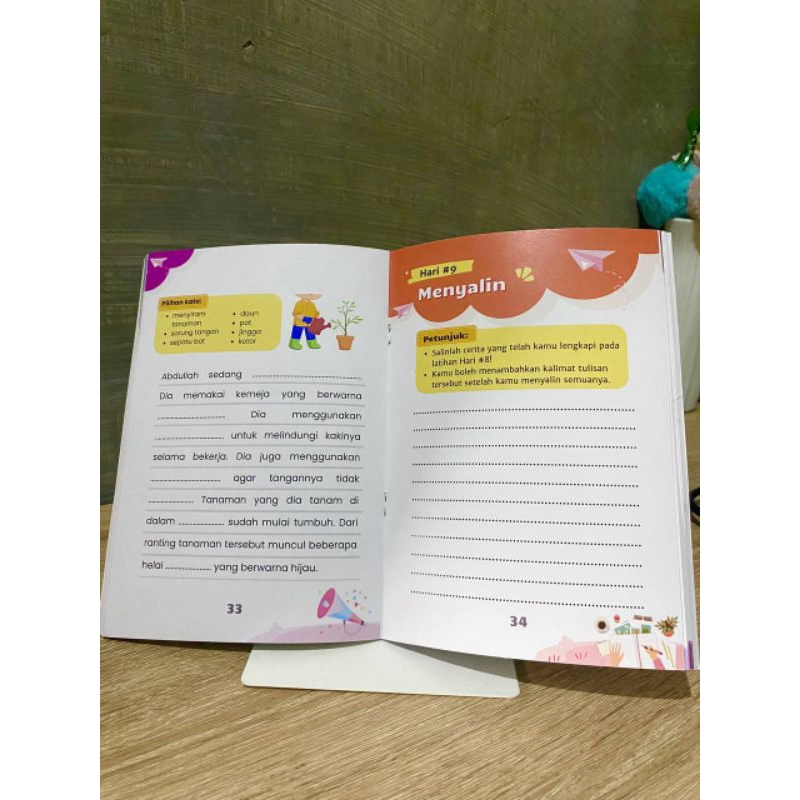 Pilihan kata:
• menyiram tanaman
• sarung tangan
• sepatu bot
• daun
• pot
• jingga
• kotor
Abdullah sedang ..............................
Dia memakai kemeja yang berwarna
.................... Dia menggunakan
.................... untuk melindungi kakinya
selama bekerja. Dia juga menggunakan
.................... agar tangannya tidak
.................... Tanaman yang dia tanam di
dalam ............. sudah mulai tumbuh. Dari
ranting tanaman tersebut muncul beberapa
helai ............. yang berwarna hijau.
33
Hari #9
Menyalin
Petunjuk:
• Salinlah cerita yang telah kamu lengkapi pada
latihan Hari #8!
• Kamu boleh menambahkan kalimat tulisan
tersebut setelah kamu menyalin semuanya.
34